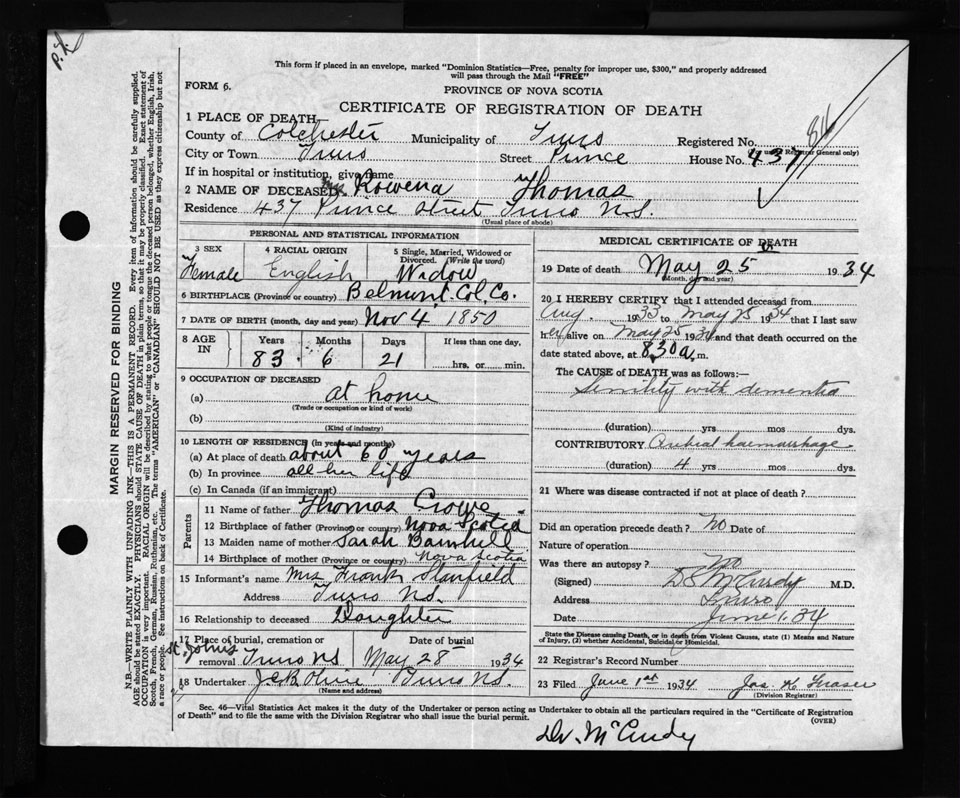 This form if placed in an envelope, marked "Dominion Statistics—Free, penalty for improper use, $300," and properly addressed
will pass through the Mail "FREE"
FORM 6.
PROVINCE OF NOVA SCOTIA
CERTIFICATE OF REGISTRATION OF DEATH
1 PLACE OF DEATH—
County of Colchester Municipality of Truro Registered No.
(For use of Registrar General only)
City or Town Truro Street Prince House No. 437
If in hospital or institution, give name
2 NAME OF DECEASED Mrs Rowena Thomas
Residence 437 Prince Street Truro N.S.
(Usual place of abode)
PERSONAL AND STATISTICAL INFORMATION
3 SEX 4 RACIAL ORIGIN 5 Single, Married, Widowed or
Divorced. (Write the word)
Female English Widow
6 BIRTHPLACE (Province or country) Belmont. Col. Co.
7 DATE OF BIRTH (month, day and year) Nov 4 1850
8 AGE IN Years Months Days If less than one day,
83 6 21 hrs. or min.
9 OCCUPATION OF DECEASED
(a) at home
(Trade or occupation or kind of work)
(b)
(Kind of industry)
10 LENGTH OF RESIDENCE (in years and months)
(a) At place of death about 60 years
(b) In province all her life
(c) In Canada (if an immigrant)
Parents
11 Name of father Thomas Crowe
12 Birthplace of father (Province or country) Nova Scotia
13 Maiden name of mother Sarah Barnhill
14 Birthplace of mother (Province or country) Nova Scotia
15 Informant's name Mrs Frank Stanfield
Address Truro N.S.
16 Relationship to deceased Daughter
17 Place of burial, cremation or Date of burial
St. Johns
removal Truro NS May 28 1934
18 Undertaker Truro N.S.
(Name and address)
MEDICAL CERTIFICATE OF DEATH
19 Date of death May 25 1934
(Month, day and year)
20 I HEREBY CERTIFY that I attended deceased from
Aug. 1933 to May 25 1934 that I last saw
her alive on May 25 1934 and that death occurred on the
date stated above, at 8.30 a. m.
The CAUSE of DEATH was as follows:—
Senility with dementia
(duration) yrs mos dys.
CONTRIBUTORY haemorrhage
(duration) 4 yrs mos dys.
21 Where was disease contracted if not at place of death?
Did an operation precede death? no Date of
Nature of operation
Was there an autopsy? no
(Signed) D S McCurdy M.D.
Address Truro
Date June 1. 34
State the Disease causing Death, or in death from Violent Causes, state (1) Means and Nature
of Injury, (2) whether Accidental, Suicidal or Homicidal.
22 Registrar's Record Number
23 Filed June 1st 1934 Jas. K. Fraser
(Division Registrar)
Sec. 46—Vital Statistics Act makes it the duty of the Undertaker or person acting as Undertaker to obtain all the particulars required in the "Certificate of Registration
of Death" and to file the same with the Division Registrar who shall issue the burial permit.
(OVER)
Dr. McCurdy
MARGIN RESERVED FOR BINDING
N.B.—WRITE PLAINLY WITH UNFADING INK—THIS IS A PERMANENT RECORD. Every item of information should be carefully supplied.
AGE should be stated EXACTLY. PHYSICIANS should STATE CAUSE OF DEATH in plain terms, so that it may be properly classified. Exact statement of
OCCUPATION is very important. RACIAL ORIGIN will be described by stating to what people or tongue the deceased person belonged, whether English, Irish,
Scotch, French, German, Russian, Ruthenian, etc. The terms "AMERICAN" or "CANADIAN" SHOULD NOT BE USED as they express citizenship but not
a race or people. See instructions on back of Certificate.